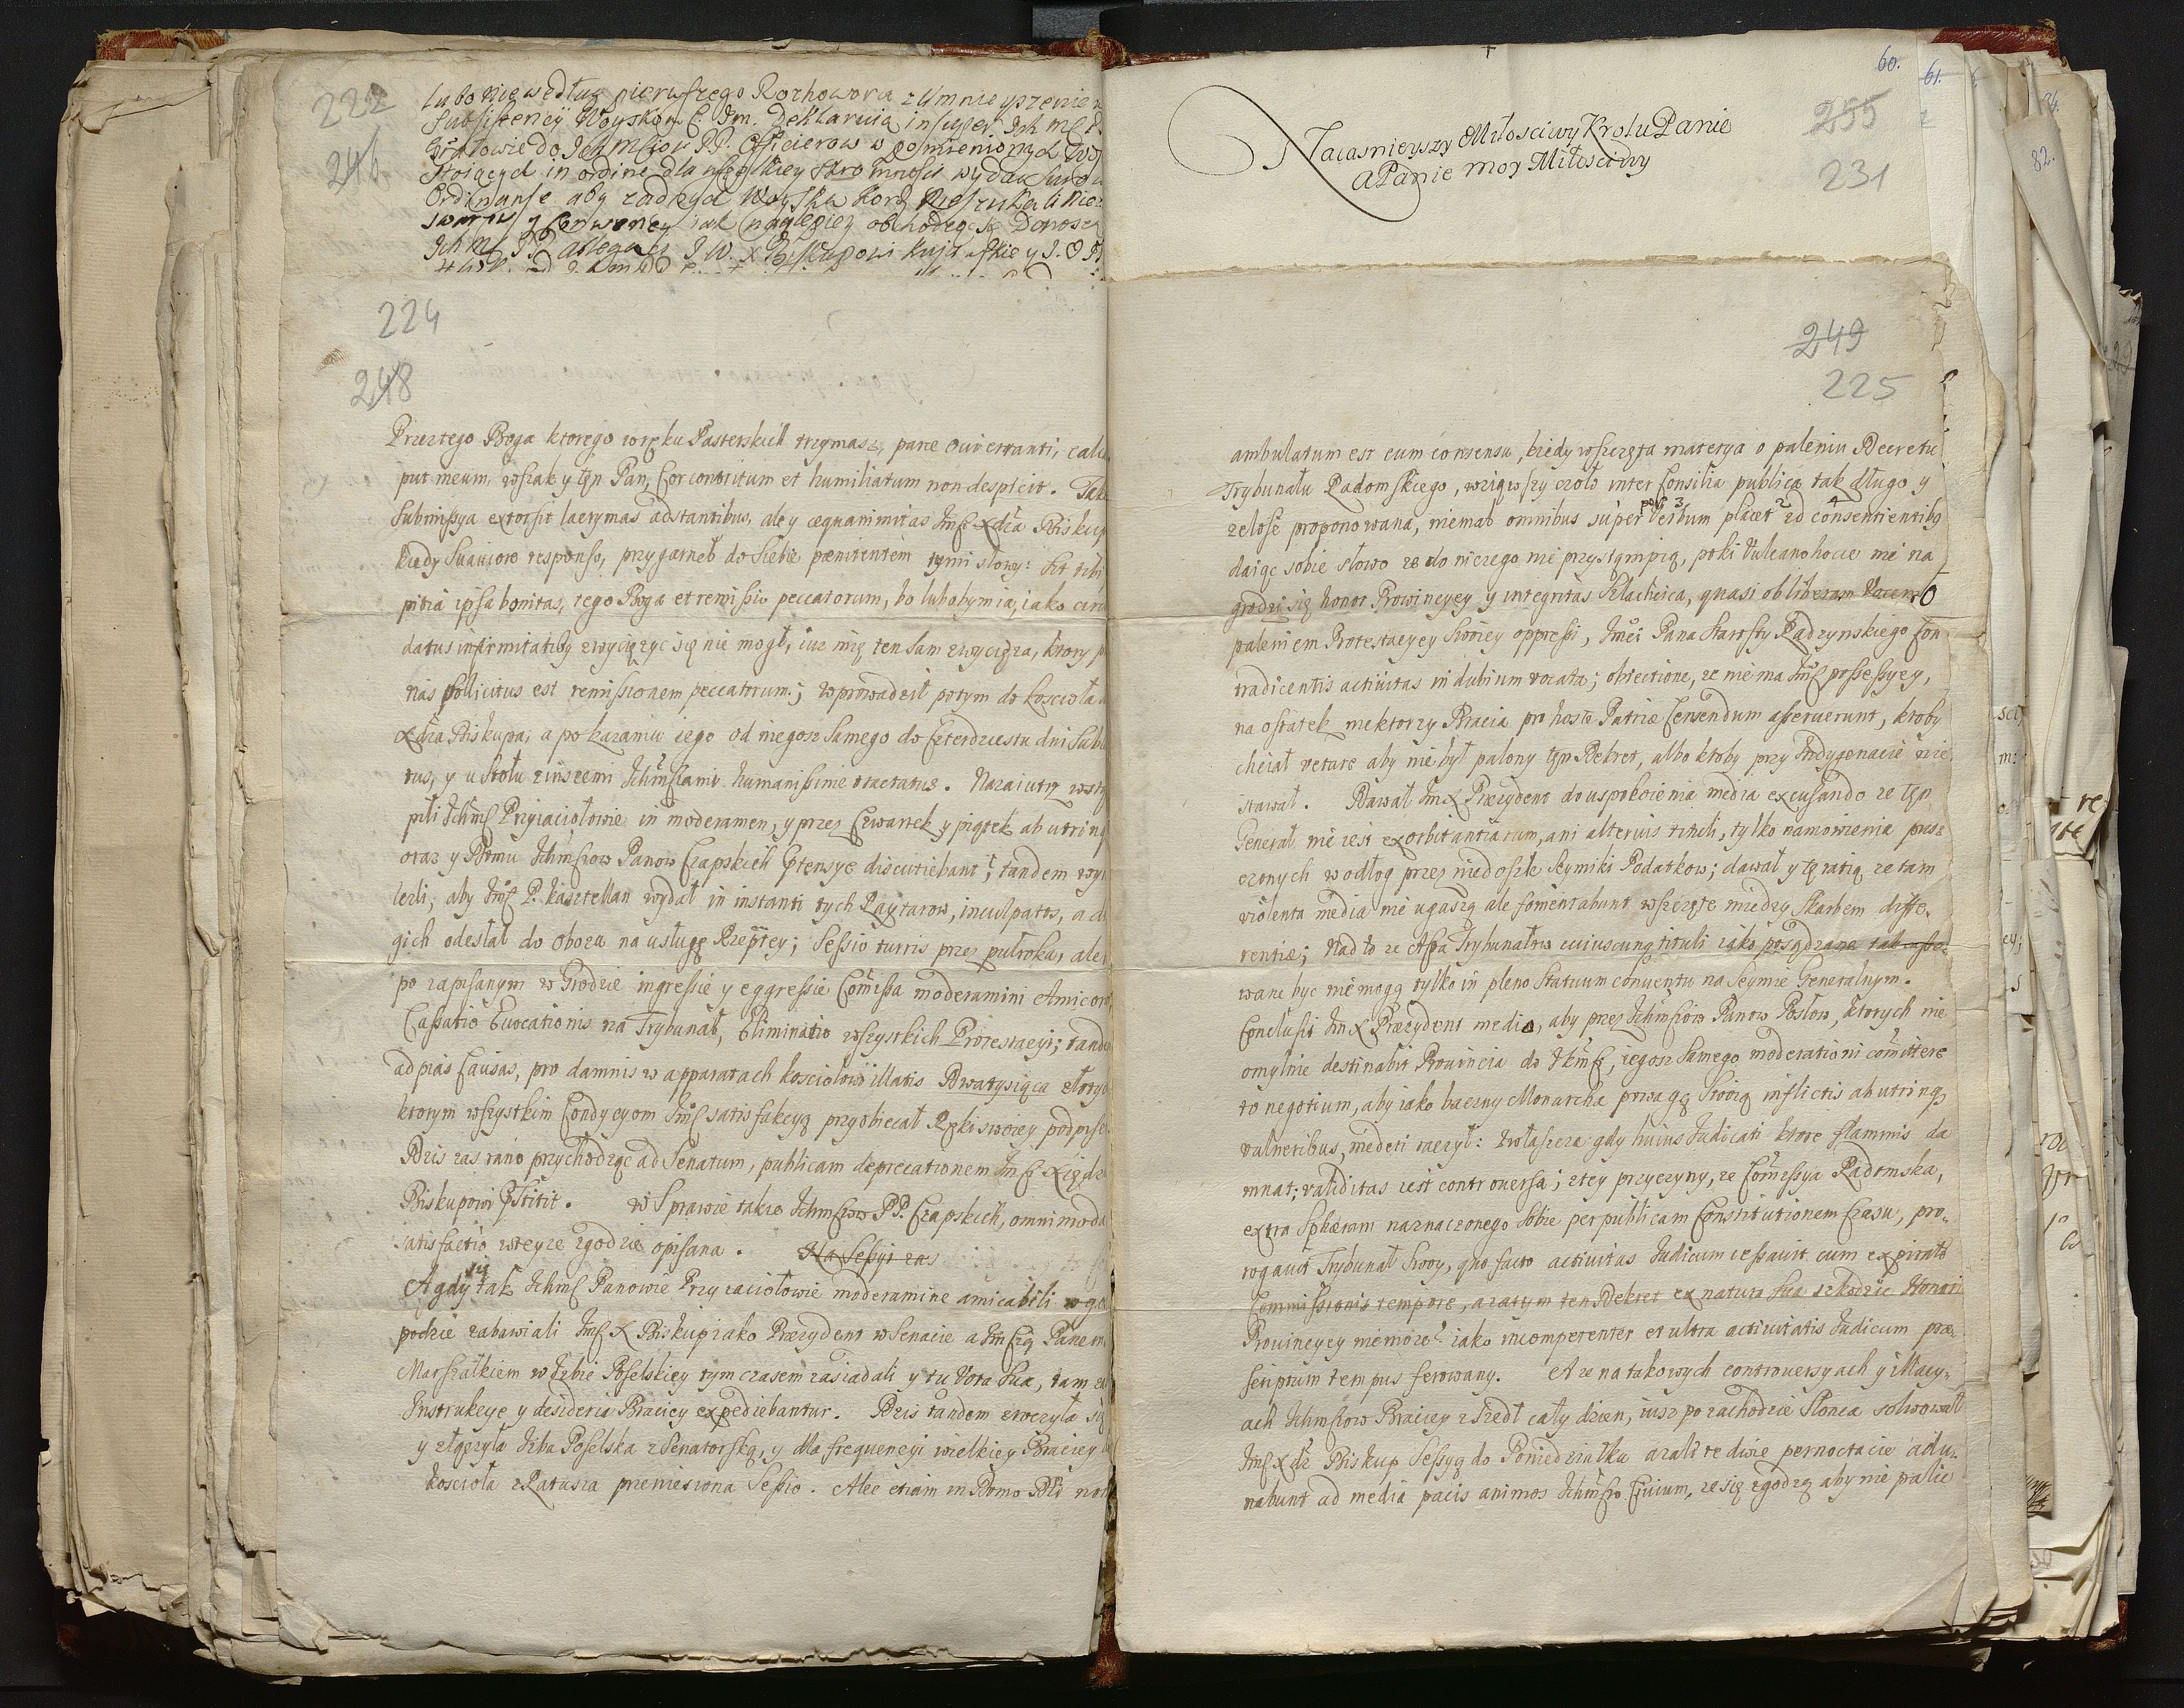 222
246
lubo nie według pierwszego Rozhoworu z umnieyszeniem
Subsistencij Woyskom C. Im. Deklaruią insuper Ich Mc P.
Grałowie do Ich Mciow PP. Officierow w pomienionych
Stoiących in ordine dla wszelkiey skromnosci wydać surowe
Ordinanse aby żadnych Woyska Koro nieszukali
iak naylepiey obchodząc się Donoszą
Ich Mc PP ablegaci J W. X Biskupowi Kujawskie y J. O.
224
248
Przez tego Boga ktorego w ręku Pasterskich trzymasz, parce oui erranti,
put meum, wszak y tęn Pan, Cor contritum et humiliatum non despicit. Taka
Submissya extorsit lacrymas adstantibus, ale y æquanimitas Jmsc Xdza Biskup
kiedy Suauiore responso, przygarneł do siebie pænitentem tymi słowy: Sit tibi
pitia ipsa bonitas, tego Boga et remissio peccatorum, bo lubobym ia, iako circu
datus infirmitatibq zwyciężyc się nie mogł, iuz mię ten Sam zwycięża, ktory
nas pollicitus est remissionem peccatorum; wprowadził potym do koscioła
Xdza Biskupa, a po kazaniu iego od niegosz Samego do Czterdziestu dni
tus, y u Stołu z inszemi Ichmsciami humanissime tractatus. Nazaiutrz wstą
pili Ichmsc Przyiaciołowie in moderamen, y przez Czwartek y piątek ab utrinq
oraz y Domu Ichmsciow Panow Czapskich Ptensye discutiebant; tandem
lezli, aby Jmsc P. kasztellan wydał in instanti tych Raytarow, inculpatos, a
gich odesłał do oboza na usługę Rzeptey; Sessio turris przez pułroka, ale
po zapisanym w Grodzie ingressie y eggressie Comissa moderamini Amicor
Cassatio Euocationis na Trybunał, Eliminatio wszystkich Protestacyi; tand
ad pias Causas, pro damnis w apparatach kosciołowi illatis Dwatysiąca złotych
ktorym wszystkim Condycyom Jmsc satisfakcyą przyobiecał Ręki swoiey podpise
Dzis zas rano przychodząc ad Senatum, publicam deprecationem Jmsc Xiędzu
Biskupowi Pstitit. W Sprawie takze Ichmsciow PP. Czapskich, omnimoda
satisfactio wteyze zgodzie opisana. Na Sessyi zas
A gdy się tak Ichmsc Panowie Przyiaciołowie moderamine amicabili w go
podzie zabawiali Jmsc X Biskup iako Præzydent w Senacie a Jmscią Panem
Marszałkiem w Izbie Poselskiey tym czasem zasiadali y tu Vota Sua, tam
Instrukcye y desideria Braciey expediebantur. Dzis tandem
y złączyła Izba Poselska z Senatorską, y dla frequencyi wielkiey Braciey
koscioła z Ratusza przeniesiona Sessio. Alec etiam in Domo DEI non
60.
61.
Naiasnieyszy Miłosciwy Krolu Panie
A Panie moy Miłosciwy
255
231
249
225
ambulatum est cum consensu, kiedy wszczęta materya o paleniu Decretu
Trybunału Radomskiego, wziąwszy czoło inter Consilia publica tak długo y
zelose proponowana, niemal omnibus super Verbum placet ad consentientibq
daiąc sobie słowo ze do niczego nie przystąmpią, poki Vulcano hocce nie na
grodzi się honor Prowincyey y integritas Szlachcica, quasi ob liberam Vocem o
paleniem Protestacyey Swoiey oppressi, Jmci Pana Starosty Radzynskiego Con
tradicentis actiuitas in dubium vocata; obiectione, ze nie ma Jmsc possessyey,
na ostatek niektorzy Bracia pro hoste Patriæ Censendum asseruerunt, ktoby
chciał vetare aby nie był palony tęn Dekret, albo ktoby przy Indygenacie nie
stawał. Dawał Jmsc X Præzydent do uspokoienia media excusando ze tęn
Generał nie iest exorbitantiarum, ani alterius tituli, tylko namowienia przez
czonych wodłog przez niedoszłe Seymiki Podatkow; dawał y tę ratią ze tam
violenta media nie ugaszą ale fomentabunt wszczęte między Skarbem diffe,
rentiæ; Nad to ze Acta Trybunałow cuiuscunq tituli iako posądzane tak
wane byc nie mogą tylko in pleno Statuum conuentu na Seymie Generalnym.
Conclusit Jmsc X Præzydent media, aby przez Ichmsciow Panow Posłow, ktorych nie
omylnie destinabit Prouincia do J kmsc, iegosz Samego moderationi comittere
to negotium, aby iako baczny Monarcha powagą Swoią inflictis ab utrinq
vulneribus, mederi raczył: zwłaszcza gdy huius Iudicati ktore flammis da
mnat; validitas iest controuersa; z tey przyczyny, ze Comissya Radomska,
extra Sphæram naznaczonego Sobie per publicam Constitutionem Czasu, pro,
rogauit Trybunał Swoy, quo facto actiuitas Iudicum cessauit cum expirato
Commissionis tempore, azatym ten Dekret ex natura Sua szkodzic Honori
Prouincyey niemoze iako incompetenter et ultra actiuitatis Iudicum præ,
scriptum tempus ferowany. A ze na takowych controuersyach y illacy,
ach Ichmsciow Braciey zszedł cały dzien, iusz po zachodzie Słonca solwował
Jmsc Xdz Biskup Sessyą do Poniedziałku azali te dwie pernoctacie adu,
nabunt ad media pacis animos Ichmsciow Ciuium, ze się zgodzą aby nie palic
82.